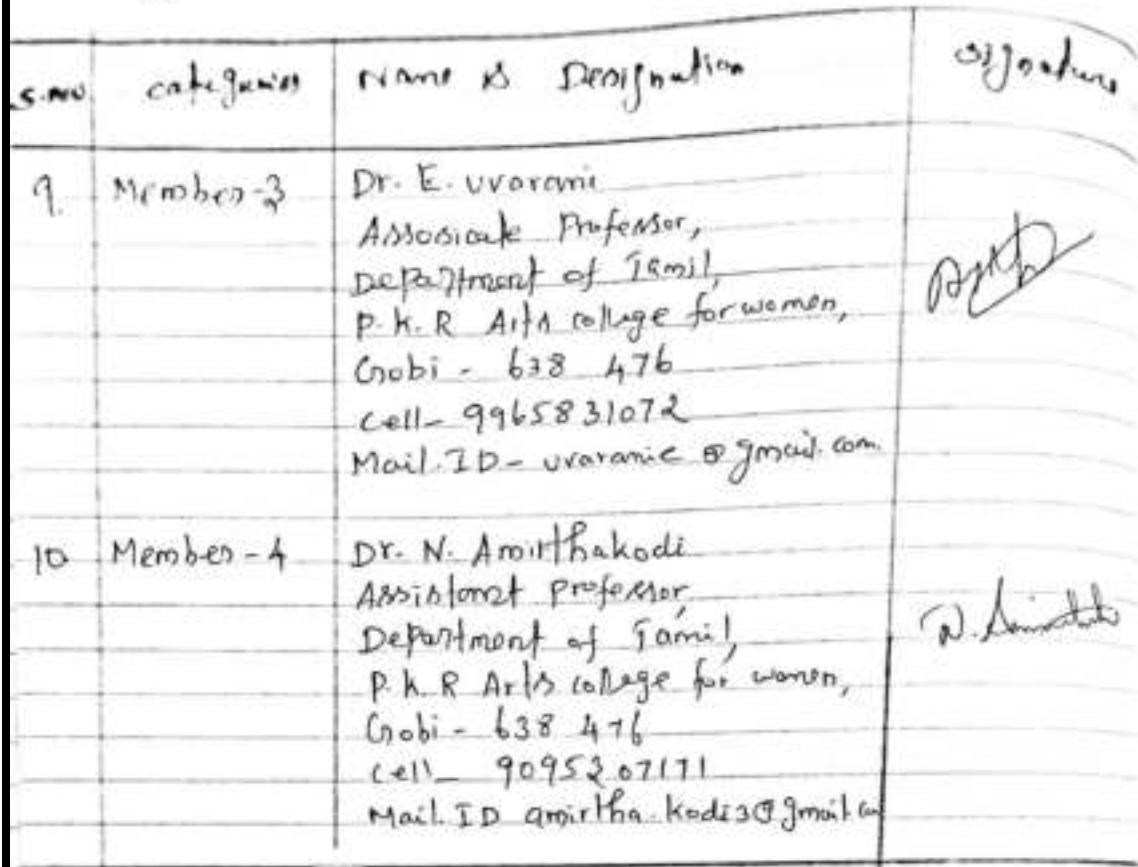 S.No categories Name & Designation Signature
9. Member-3 Dr. E. Uvarani
Assosiate Professor,
Department of Tamil,
P.K.R Arts college for women,
Gobi - 638 476
Cell- 9965831072
Mail.ID- uvaranie@gmail.com
10 Member-4 Dr. N. Amirthakodi
Assistant Professor,
Department of Tamil,
P.K.R Arts college for women,
Gobi - 638 476
Cell- 9095207171
Mail.ID amirtha.kodi3@gmail.com